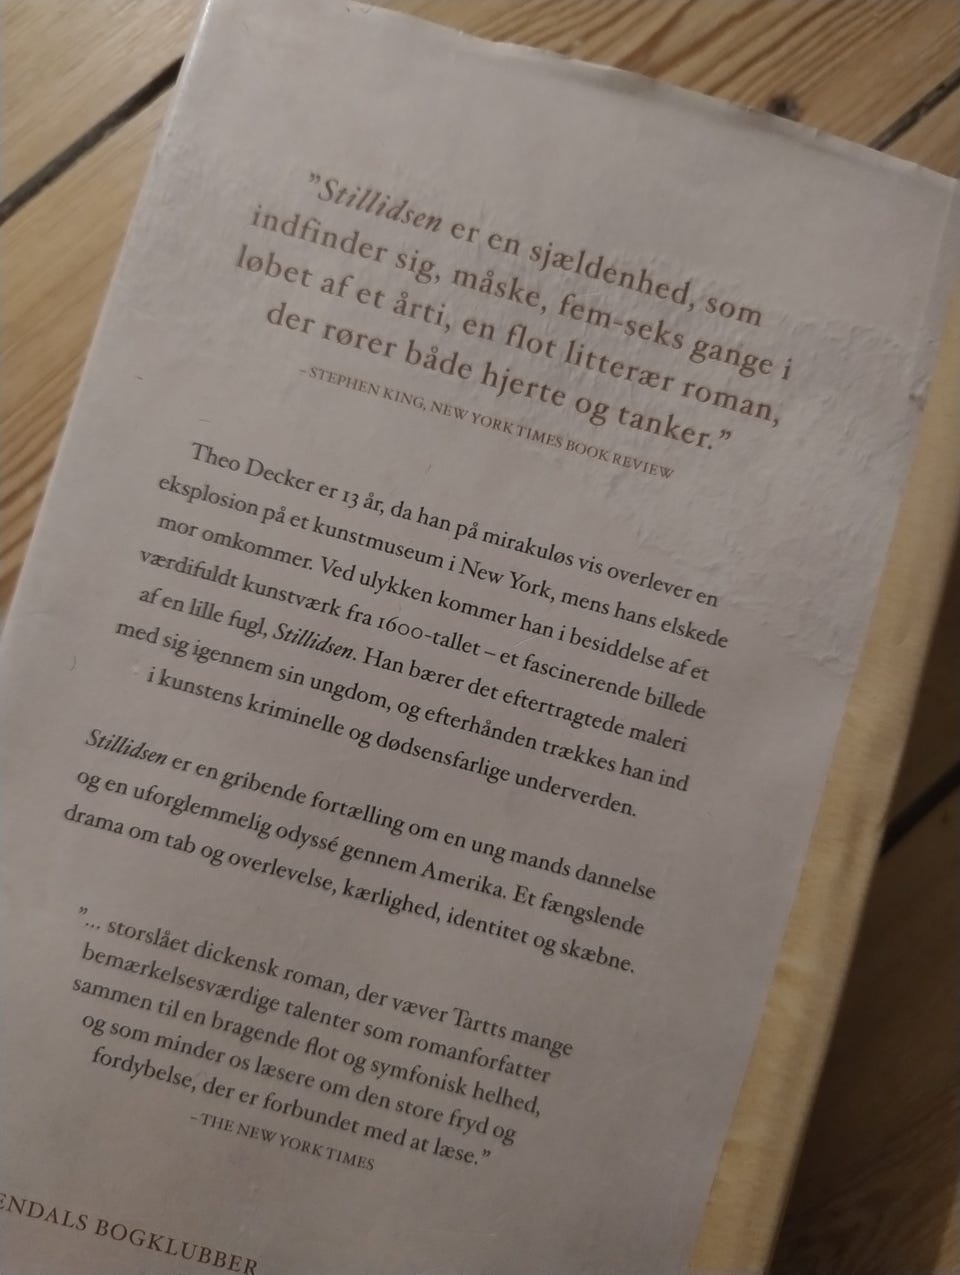 ”Stillidsen er en sjældenhed, som
indfinder sig, måske, fem-seks gange i
løbet af et årti, en flot litterær roman,
der rører både hjerte og tanker.”
– STEPHEN KING, NEW YORK TIMES BOOK REVIEW
Theo Decker er 13 år, da han på mirakuløs vis overlever en
eksplosion på et kunstmuseum i New York, mens hans elskede
mor omkommer. Ved ulykken kommer han i besiddelse af et
værdifuldt kunstværk fra 1600-tallet – et fascinerende billede
af en lille fugl, Stillidsen. Han bærer det eftertragtede maleri
med sig igennem sin ungdom, og efterhånden trækkes han ind
i kunstens kriminelle og dødsensfarlige underverden.
Stillidsen er en gribende fortælling om en ung mands dannelse
og en uforglemmelig odyssé gennem Amerika. Et fængslende
drama om tab og overlevelse, kærlighed, identitet og skæbne.
”... storslået dickensk roman, der væver Tartts mange
bemærkelsesværdige talenter som romanforfatter
sammen til en bragende flot og symfonisk helhed,
og som minder os læsere om den store fryd og
fordybelse, der er forbundet med at læse.”
– THE NEW YORK TIMES
ENDALS BOGKLUBBER